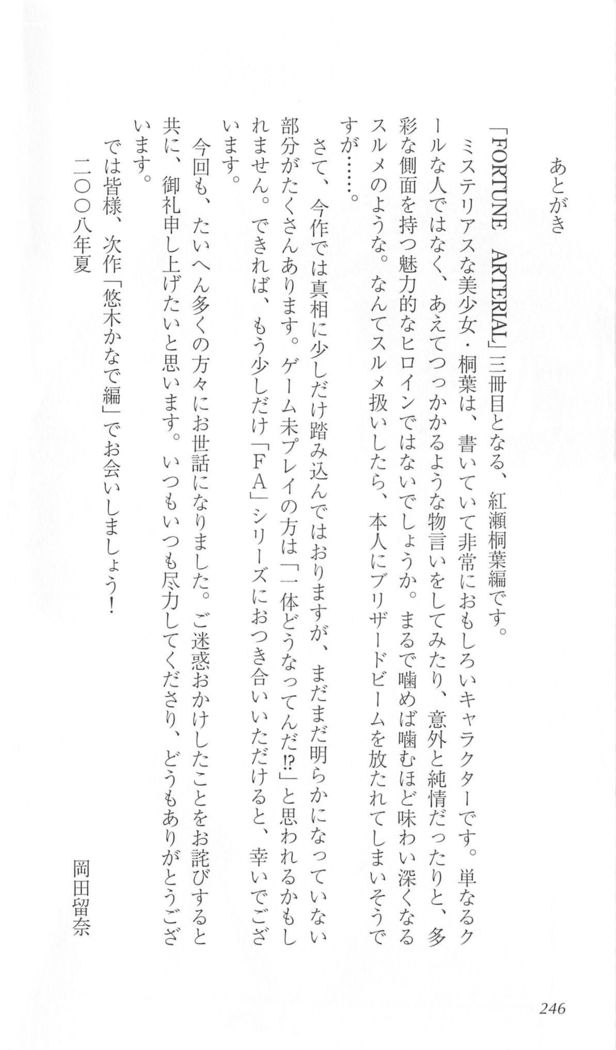 あとがき
「FORTUNE ARTERIAL」三冊目となる、紅瀬桐葉編です。
ミステリアスな美少女・桐葉は、書いていて非常におもしろいキャラクターです。単なるク
ールな人ではなく、あえてつっかかるような物言いをしてみたり、意外と純情だったりと、多
彩な側面を持つ魅力的なヒロインではないでしょうか。まるで噛めば噛むほど味わい深くなる
スルメのような。なんてスルメ扱いしたら、本人にブリザードビームを放たれてしまいそうで
すが……。
さて、今作では真相に少しだけ踏み込んではおりますが、まだまだ明らかになっていない
部分がたくさんあります。ゲーム未プレイの方は「一体どうなってんだ!?」と思われるかもし
れません。できれば、もう少しだけ「ＦＡ」シリーズにおつき合いいただけると、幸いでござ
います。
今回も、たいへん多くの方々にお世話になりました。ご迷惑おかけしたことをお詫びすると
共に、御礼申し上げたいと思います。いつもいつも尽力してくださり、どうもありがとうござ
います。
では皆様、次作「悠木かなで編」でお会いしましょう！
二〇〇八年夏
岡田留奈
246